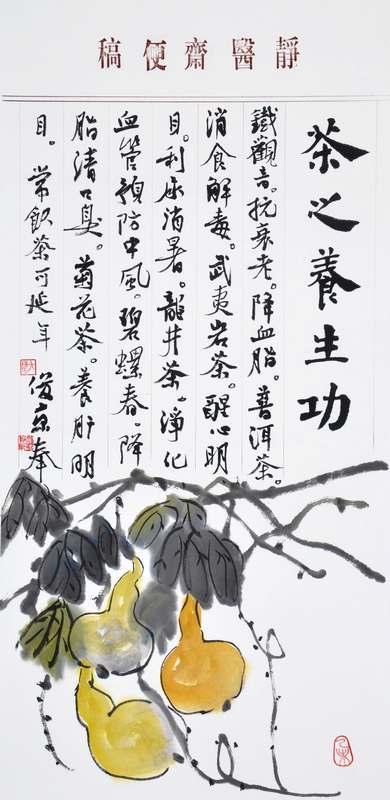 靜醫齋便稿
茶之養生功
鐵觀音。抗衰老。降血脂。普洱茶。
消食解毒。武夷岩茶。醒心明
目。利尿消暑。龍井茶。淨化
血管預防中風。碧螺春。降
脂清口臭。菊花茶。養肝明
目。常飲茶可延年
俊奉